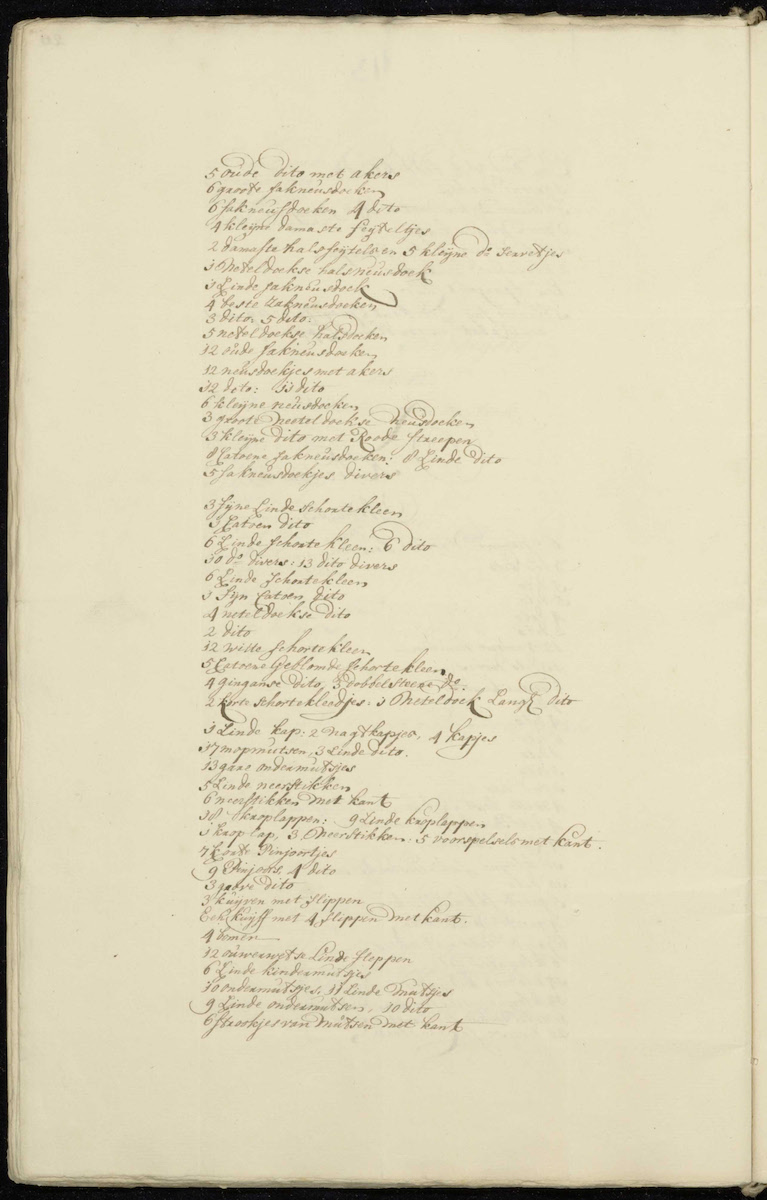 5 oude dito met akers
6 groote sakneusdoeken
6 sakneusdoeken 4 dito
4 kleyne damaste feyteltjes
2 damaste hals feytels en 5 kleyne do Servetjes
1 Neteldoekse halsneusdoek
1 Linde sakneusdoek
4 beste zakneusdoeken
3 dito: 5 dito:
5 neteldoekse halsdoeken
12 oude sakneusdoeken
12 neusdoekjes met akers
12 dito: 11 dito
6 kleyne neusdoeken
3 groote Neeteldoekse Neusdoeken
3 kleyne dito met Roode streepen
8 Catoene sakneusdoeken: 8 Linde dito
5 sakneusdoekjes divers
3 fyne Linde Schortekleen
3 Catoen dito
6 Linde schortekleen: 6 dito
10 do divers: 13 dito divers
6 Linde Schortekleen
1 fyn Catoen dito
4 neteldoekse dito
2 dito
12 witte schortekleen
5 Catoene Geblomde schortekleen
4 ginganse dito, 3 dobbelsteene do
2 korte schortekleedjes: 1 Neteldoek Lang dito
1 Linde kap: 2 nagtkapjes, 4 kapjes
17 mopmutsen, 3 Linde dito.
13 gare ondermutsjes
5 Linde neerstikken
6 neerstikken met kant
18 kroplappen: 9 Linde kroplappen
1 kroplap, 3 Neerstikken: 5 voorspelsels met kant.
7 korte Pinjoortjes
9 Pinjoors, 4 dito
3 gare dito
3 kuyven met slippen
Een kuyff met 4 slippen met kant.
4
12 ouwerwetse Linde sloppen
6 Linde kindermutsjes
10 ondermutsjes, 11 Linde mutsjes
9 Linde ondermutsen, 10 dito
6 strookjes van mutsen met kant